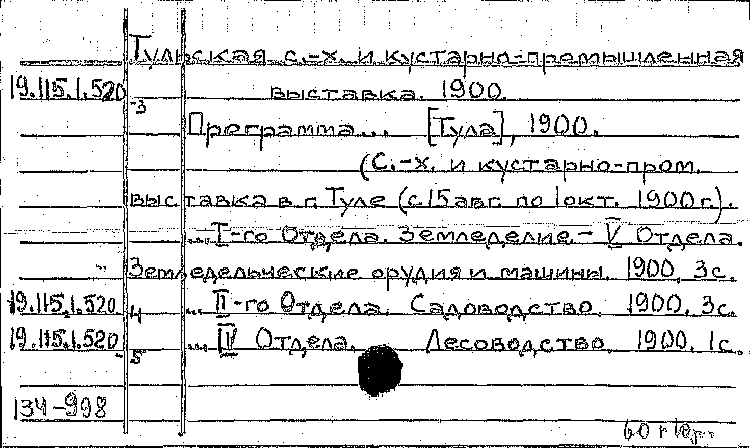 Тульская с.-х. и кустарно-промышленная
19.115.1.520 выставка. 1900.
-3
Программа... [Тула], 1900.
(С.-х. и кустарно-пром.
выставка в г. Туле (с 15 авг. по 1 окт. 1900 г.).
... I-го Отдела. Земледелие. - V Отдела.
Земледельческие орудия и машины. 1900. 3 с.
19.115.1.520 4 ... II-го Отдела. Садоводство. 1900. 3 с.
19.115.1.520 -5 ... IV Отдела. Лесоводство. 1900. 1 с.
134-998